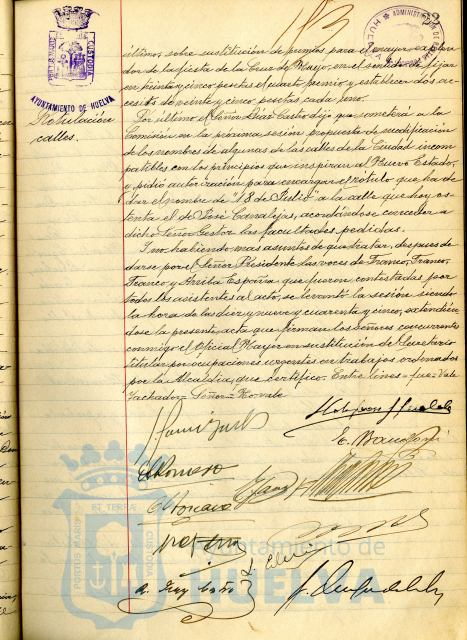 AYUNTAMIENTO DE HUELVA
Rotulación
calles.
último, sobre sustitución de puntos para el mayor esplen-
dor de la fiesta de la Cruz de Mayo, en el sentido de fijar
en treinta y cinco pesetas el cuarto premio y establecer dos ac-
cesits de veinte y cinco pesetas cada uno.
Por último el Señor Díaz dijo que someterá a la
Comisión en la próxima sesión propuesta de modificación
de los nombres de algunas de las calles de la Ciudad incom
patibles con los principios que inspiran al Nuevo Estado,
y pidió autorización para encargar el rótulo que ha de
dar el nombre de "18 de Julio" a la calle que hoy os-
tenta el de José Canalejas, acordándose conceder a
dicho Señor Gestor las facultades pedidas.
Y no habiendo mas asuntos de que tratar, despues de
darse por el Señor Presidente las voces de Franco, Franco,
Franco y Arriba España que fueron contestadas por
todos los asistentes al acto, se levantó la sesión siendo
la hora de las diez y nueve y cuarenta y cinco, extendién
dose la presente acta que firman los Señores concurrentes
conmigo el Oficial Mayor en sustitución de Secretario
titular por ocupaciones urgentes en trabajos ordenados
por la Alcaldía, que certifico. Entre lineas = fue = Vale
Tachado = Señor = No vale
PORTUS MARIS ET TERRAE CUSTODIA
Ayuntamiento de
HUELVA